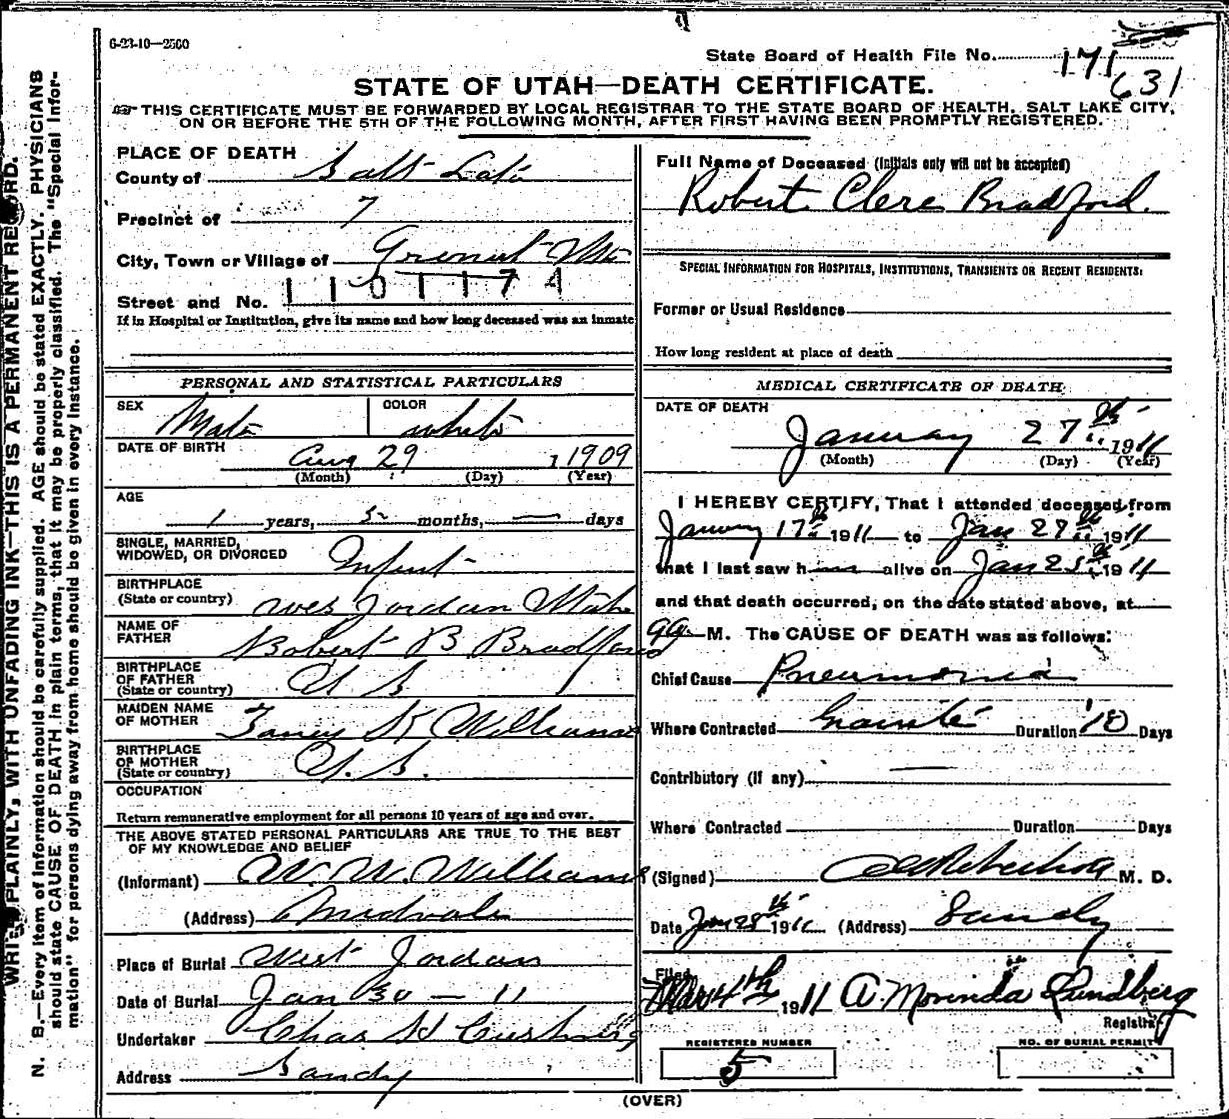 6-23-10—2500
State Board of Health File No. 171
631
STATE OF UTAH—DEATH CERTIFICATE.
THIS CERTIFICATE MUST BE FORWARDED BY LOCAL REGISTRAR TO THE STATE BOARD OF HEALTH, SALT LAKE CITY,
ON OR BEFORE THE 5TH OF THE FOLLOWING MONTH, AFTER FIRST HAVING BEEN PROMPTLY REGISTERED.
PLACE OF DEATH
County of Salt Lake
Precinct of 7
City, Town or Village of
Street and No. 1101174
If in Hospital or Institution, give its name and how long deceased was an inmate
Full Name of Deceased (Initials only will not be accepted)
Robert Clere Bradford.
SPECIAL INFORMATION FOR HOSPITALS, INSTITUTIONS, TRANSIENTS OR RECENT RESIDENTS:
Former or Usual Residence
How long resident at place of death
PERSONAL AND STATISTICAL PARTICULARS
SEX Male COLOR white
DATE OF BIRTH Aug 29 1909
(Month) (Day) (Year)
AGE
1 years, 5 months, — days
SINGLE, MARRIED,
WIDOWED, OR DIVORCED Infant
BIRTHPLACE
(State or country) West Jordan Utah
NAME OF
FATHER Robert B Bradford
BIRTHPLACE
OF FATHER
(State or country) U S
MAIDEN NAME
OF MOTHER K Williams
BIRTHPLACE
OF MOTHER
(State or country) U. S.
OCCUPATION
Return remunerative employment for all persons 10 years of age and over.
THE ABOVE STATED PERSONAL PARTICULARS ARE TRUE TO THE BEST
OF MY KNOWLEDGE AND BELIEF
(Informant) W. W. Williams
(Address) Midvale
Place of Burial West Jordan
Date of Burial Jan 30 — 11
Undertaker Chas H Cushing
Address Sandy
MEDICAL CERTIFICATE OF DEATH
DATE OF DEATH
January 27th 1911
(Month) (Day) (Year)
I HEREBY CERTIFY, That I attended deceased from
January 17th 1911 to Jan 27th 1911
that I last saw h alive on Jan 25th 1911
and that death occurred, on the date stated above, at
M. The CAUSE OF DEATH was as follows:
Chief Cause Pneumonia
Where Contracted Granite Duration 10 Days
Contributory (if any) —
Where Contracted Duration Days
(Signed) M. D.
Date Jan 28th 1911 (Address) Sandy
Filed
Mar 4th 1911 A. Morinda Lundberg
Registrar
REGISTERED NUMBER
5
NO. OF BURIAL PERMIT
(OVER)
WRITE PLAINLY, WITH UNFADING INK—THIS IS A PERMANENT RECORD.
N. B.—Every item of information should be carefully supplied. AGE should be stated EXACTLY. PHYSICIANS
should state CAUSE OF DEATH in plain terms, that it may be properly classified. The "Special Infor-
mation" for persons dying away from home should be given in every instance.